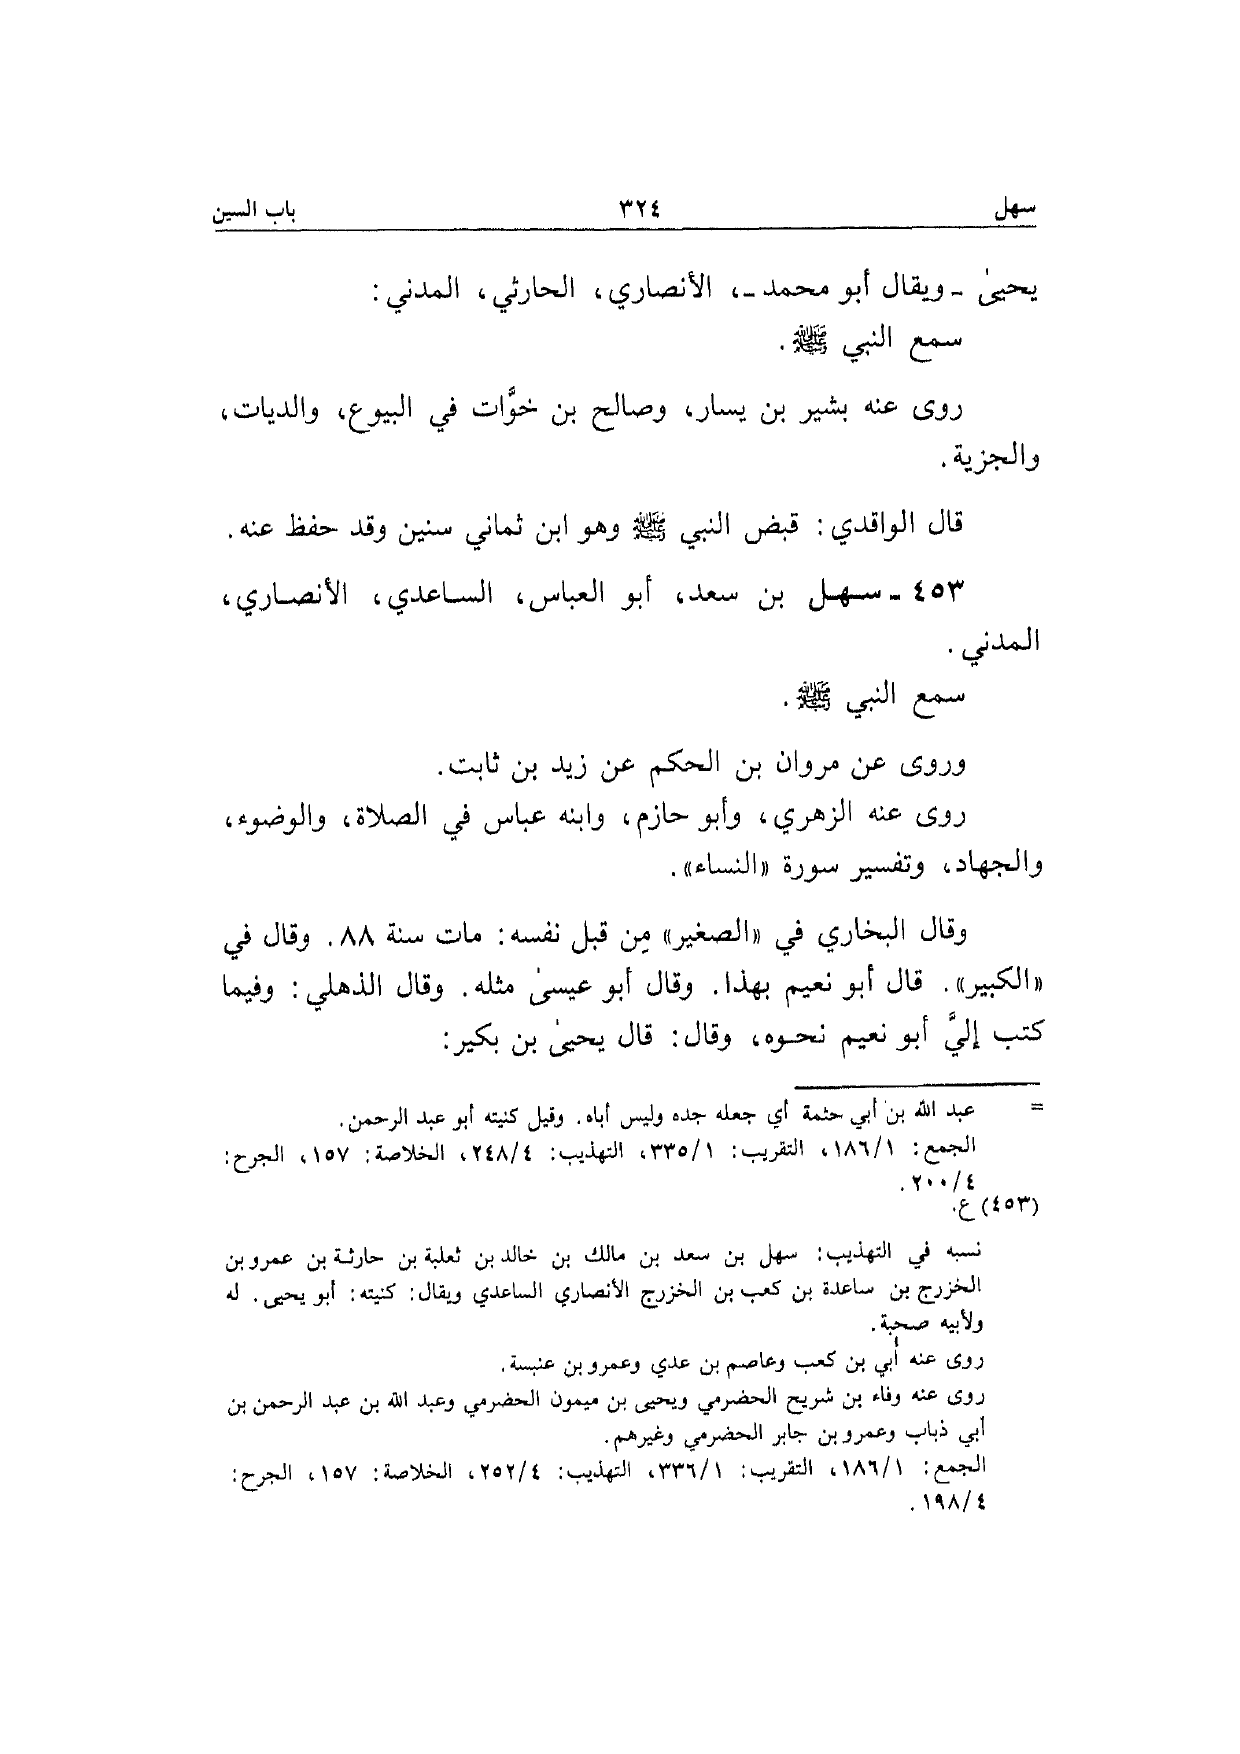 سهل ٣٢٤ باب السين
يحيىٰ - ويقال أبو محمد -، الأنصاري، الحارثي، المدني:
سمع النبي ﷺ.
روى عنه بشير بن يسار، وصالح بن خوَّات في البيوع، والديات،
والجزية.
قال الواقدي: قبض النبي ﷺ وهو ابن ثماني سنين وقد حفظ عنه.
٤٥٣ - سهل بن سعد، أبو العباس، الساعدي، الأنصاري،
المدني.
سمع النبي ﷺ.
وروى عن مروان بن الحكم عن زيد بن ثابت.
روى عنه الزهري، وأبو حازم، وابنه عباس في الصلاة، والوضوء،
والجهاد، وتفسير سورة «النساء».
وقال البخاري في «الصغير» مِن قبل نفسه: مات سنة ٨٨. وقال في
«الكبير». قال أبو نعيم بهذا. وقال أبو عيسىٰ مثله. وقال الذهلي: وفيما
كتب إليَّ أبو نعيم نحوه، وقال: قال يحيىٰ بن بكير:
= عبد الله بن أبي حثمة أي جعله جده وليس أباه. وقيل كنيته أبو عبد الرحمن.
الجمع: ١/١٨٦، التقريب: ١/٣٣٥، التهذيب: ٤/٢٤٨، الخلاصة: ١٥٧، الجرح:
٤/٢٠٠.
(٤٥٣) ع.
نسبه في التهذيب: سهل بن سعد بن مالك بن خالد بن ثعلبة بن حارثة بن عمرو بن
الخزرج بن ساعدة بن كعب بن الخزرج الأنصاري الساعدي ويقال: كنيته: أبو يحيى. له
ولأبيه صحبة.
روى عنه أبي بن كعب وعاصم بن عدي وعمرو بن عنبسة.
روى عنه وفاء بن شريح الحضرمي ويحيى بن ميمون الحضرمي وعبد الله بن عبد الرحمن بن
أبي ذباب وعمرو بن جابر الحضرمي وغيرهم.
الجمع: ١/١٨٦، التقريب: ١/٣٣٦، التهذيب: ٤/٢٥٢، الخلاصة: ١٥٧، الجرح:
٤/١٩٨.